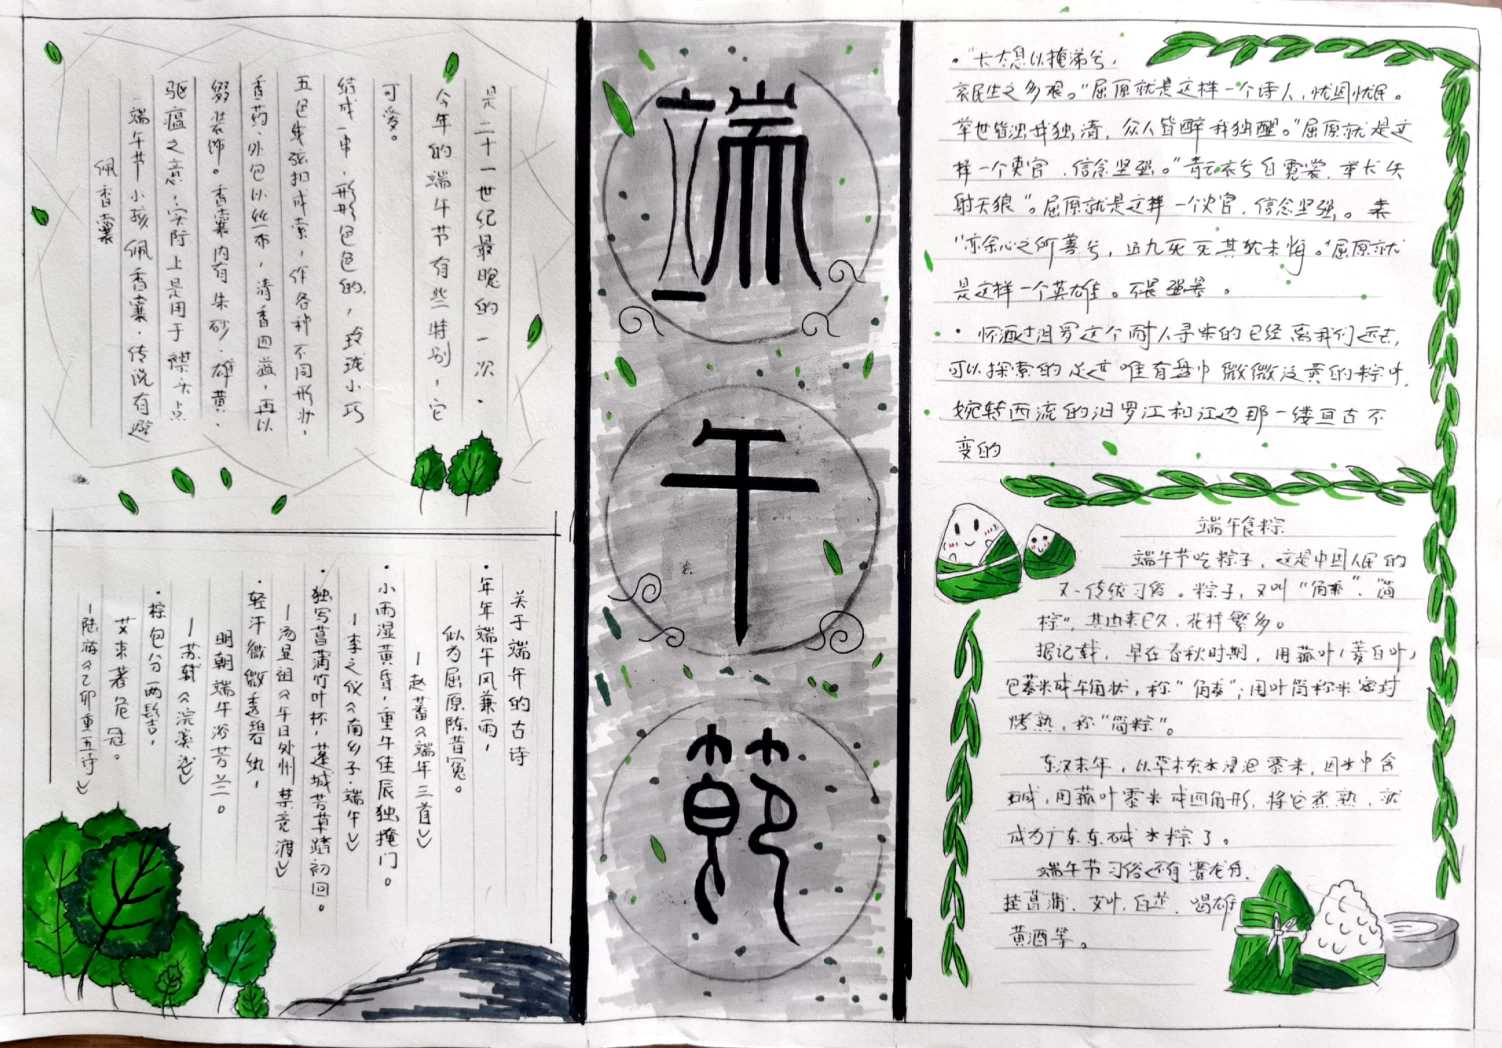 佩香囊
端午节小孩佩香囊，传说有避
驱瘟之意，实际上是用于襟头点
缀装饰。香囊内有朱砂、雄黄、
香药，外包以丝布，清香四溢，再以
五色弦扣成索，作各种不同形状，
结成一串，形形色色的，玲珑小巧
可爱。
今年的端午节有些特别，它
是二十一世纪最晚的一次。
关于端午的古诗
·年年端午风兼雨，
似为屈原陈昔冤。
—赵蕃《端午三首》
·小雨湿黄昏，重午佳辰独掩门。
—李之仪《南乡子·端午》
·独写菖蒲竹叶杯，蓬城芳草踏初回。
—汤显祖《午日处州禁竞渡》
·轻汗微微透碧纨，
明朝端午浴芳兰。
—苏轼《浣溪沙》
·粽包分两髻，
艾束著危冠。
—陆游《乙卯重五诗》
端
午
節
·“长太息以掩涕兮，
哀民生之多艰。”屈原就是这样一个诗人，忧国忧民。
举世皆浊我独清，众人皆醉我独醒。”屈原就是这
样一个吏官，信念坚强。”青云衣兮白霓裳，举长矢
射天狼”。屈原就是这样一个史官，信念坚强。
“亦余心之所善兮，虽九死其犹未悔。”屈原就
是这样一个英雄。不畏强暴。
·怀沙汨罗这个耐人寻味的已经离我们远去，
可以探索的足迹唯有盘中微微泛黄的粽叶，
婉转西流的汨罗江和江边那一缕亘古不
变的
端午食粽
端午节吃粽子，这是中国人民的
又一传统习俗。粽子，又叫“角黍”、“筒
粽”。其由来已久，花样繁多。
据记载，早在春秋时期，用菰叶（茭白叶）
包黍米成牛角状，称“角黍”；用竹筒称米密封
烤熟，称“筒粽”。
东汉末年，以草木灰水浸泡黍米，因水中含
碱，用菰叶黍米成四角形，将它煮熟，就
成为广东东碱水粽了。
端午节习俗还有赛龙舟，
挂菖蒲、艾叶，白芷，喝雄
黄酒等。